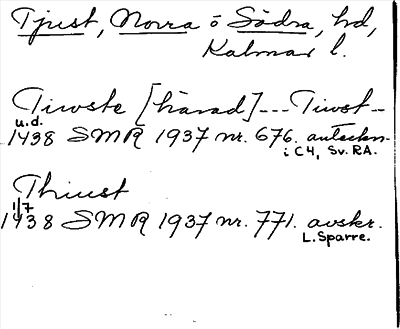 Tjust, Norra o Södra, hd,
Kalmar l.
Tiwste [härad] --- Tiwst--
u.d.
1438 SMR 1937 nr. 676. anteckn.
i C4, Sv. RA.
Thiust
1/7
1438 SMR 1937 nr. 771. avskr.
L. Sparre.